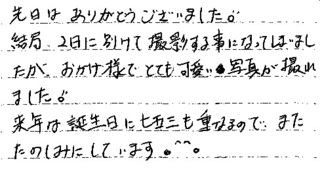 先日は ありがとうございました。
結局、2日に分けて撮影する事になってしまいまし
たが、おかげ様でとても可愛い写真が撮れ
ました。
来年は誕生日に七五三も重なるので、また
たのしみにしています。^^。